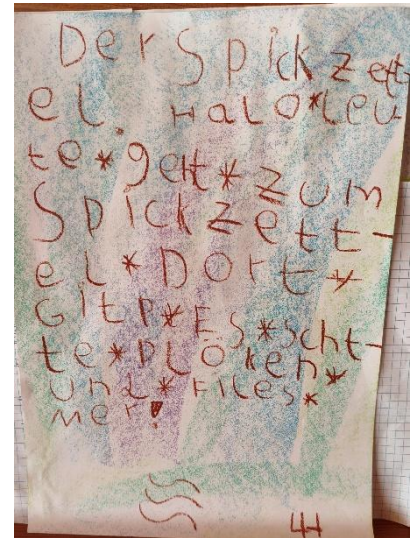 Der Spickzett
el. Halo*leu
te*gett*zum
Spickzett-
el*Dort*
Gitp*Es*scht-
te*plöken*
und*files*
mer!
44